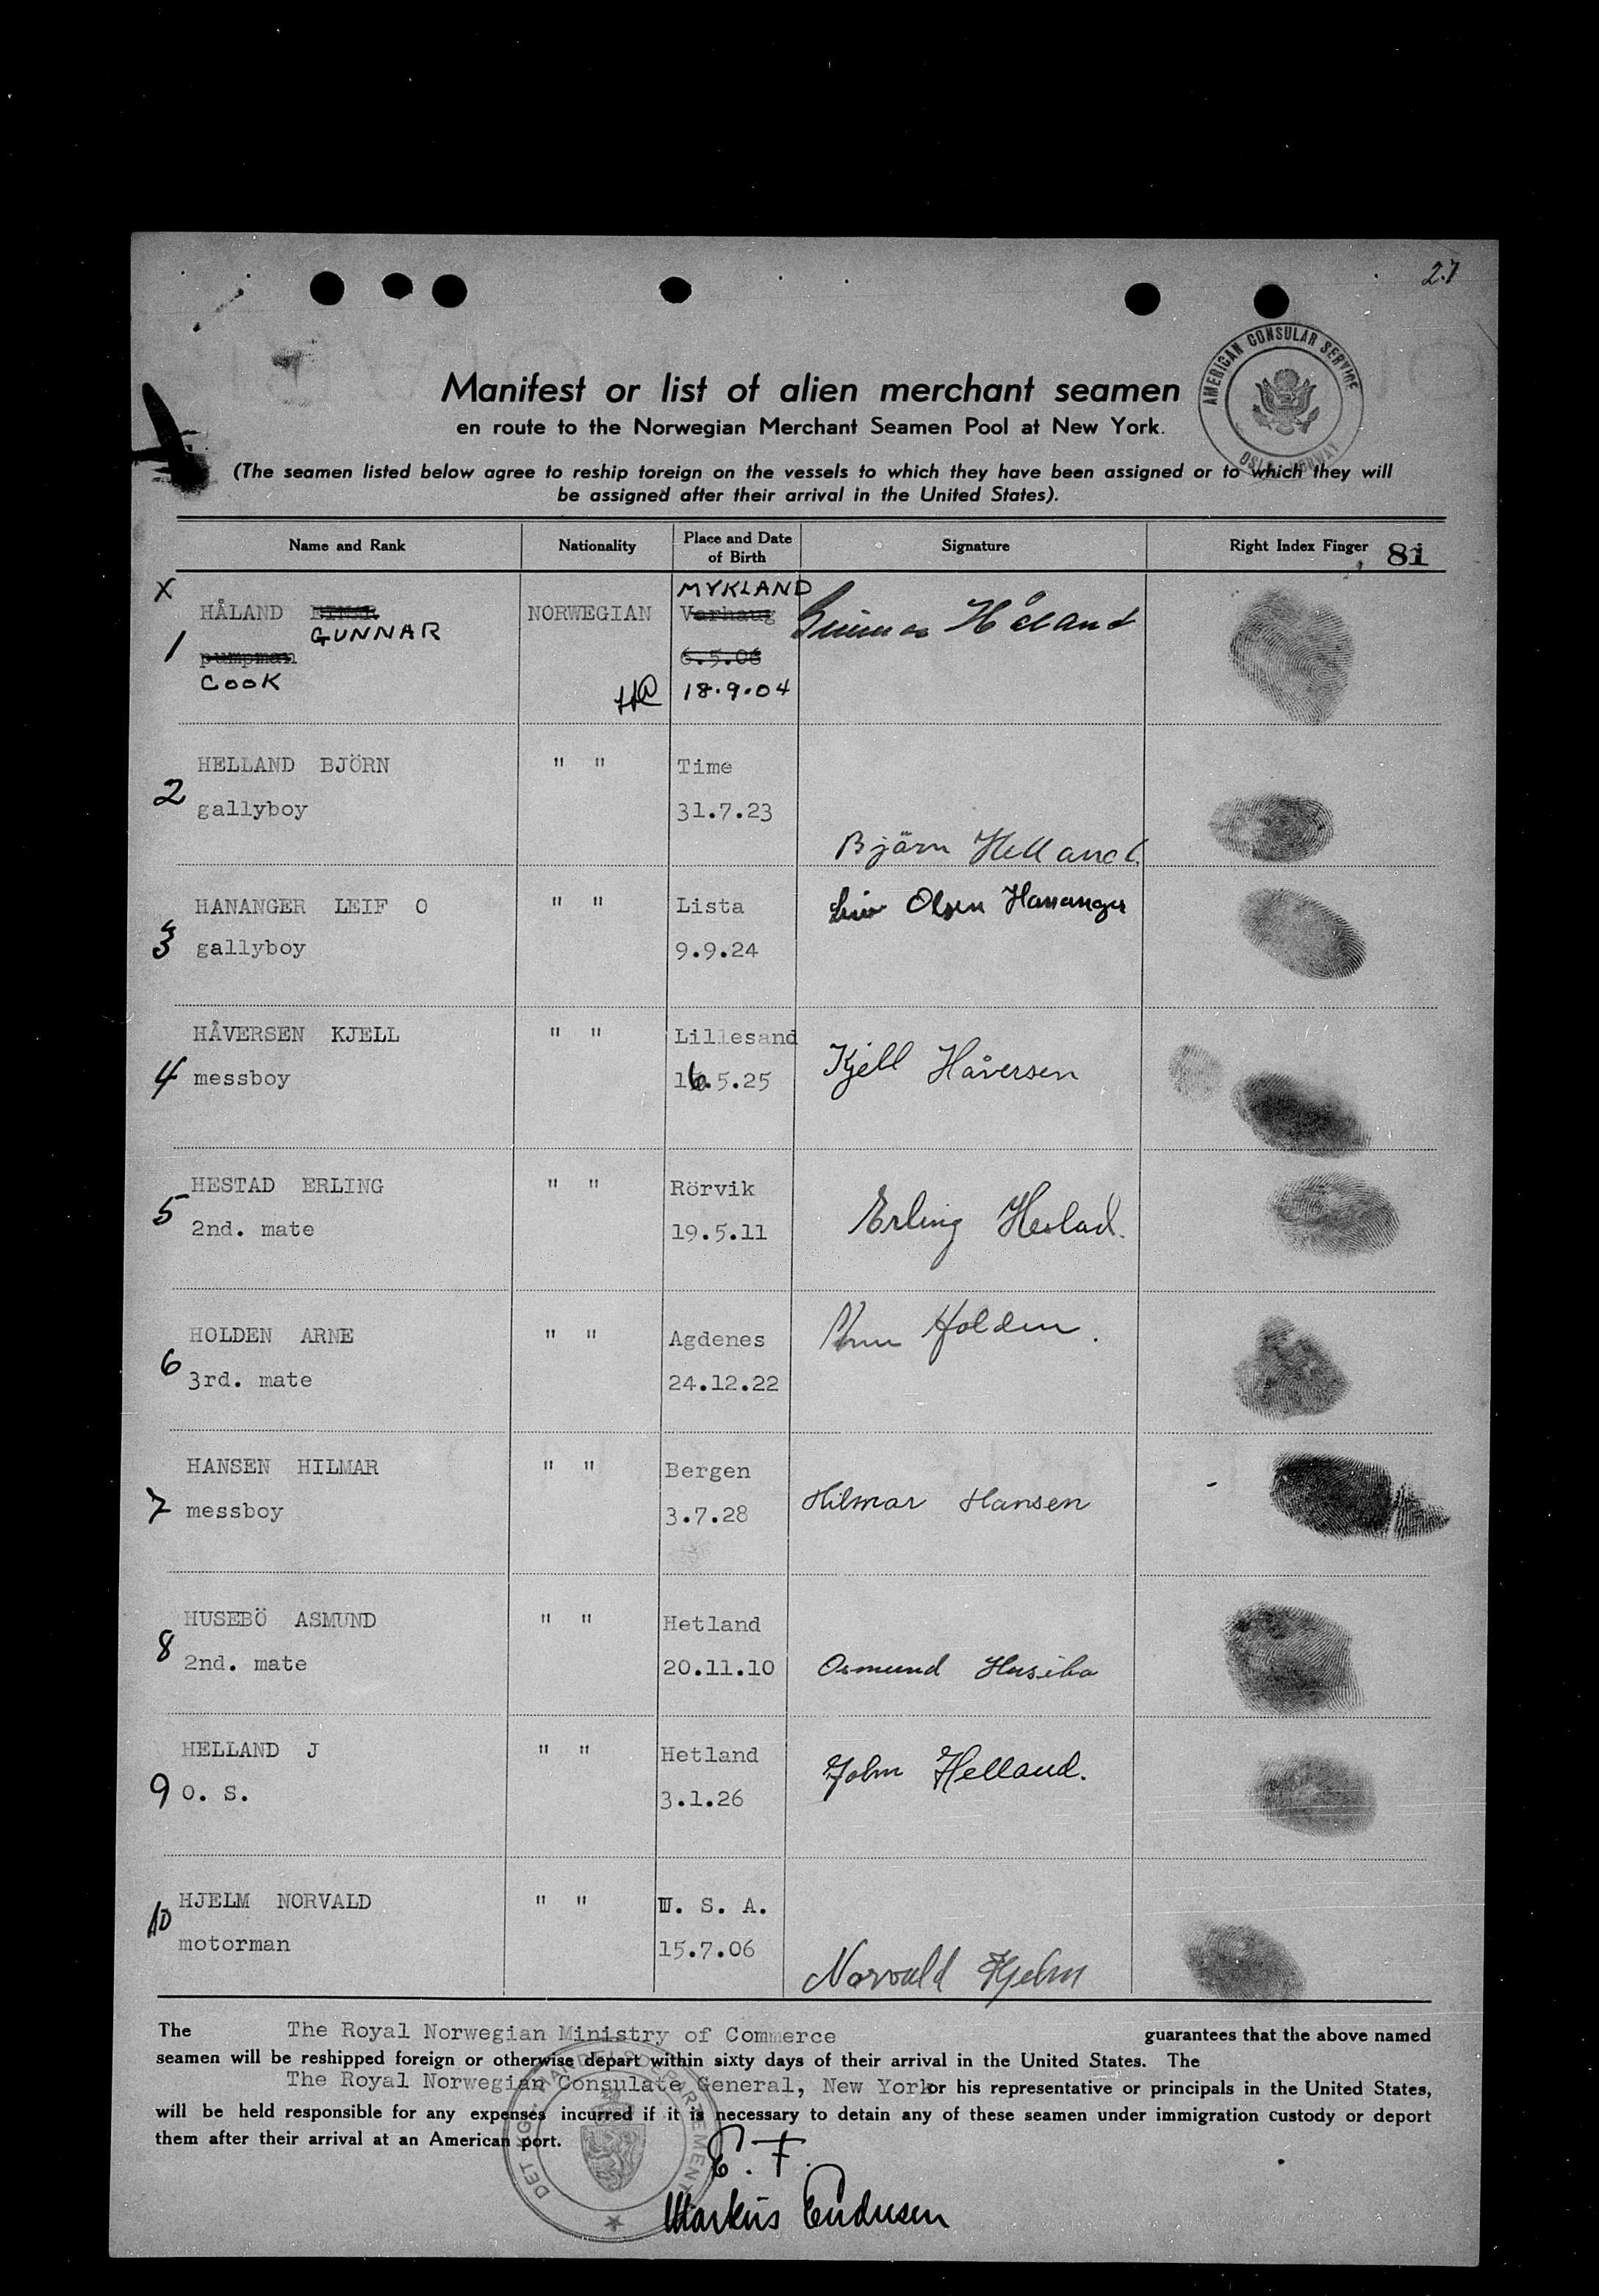 27
AMERICAN CONSULAR SERVICE
OSLO, NORWAY
Manifest or list of alien merchant seamen
en route to the Norwegian Merchant Seamen Pool at New York.
(The seamen listed below agree to reship foreign on the vessels to which they have been assigned or to which they will
be assigned after their arrival in the United States).
Name and Rank Nationality Place and Date of Birth Signature Right Index Finger 81
X
MYKLAND
1 HÅLAND EINAR NORWEGIAN Varhaug Gunnar Håland
GUNNAR
pumpman 6.5.06
COOK 18.9.04
HELLAND BJÖRN " " Time
2 gallyboy 31.7.23
Björn Helland
HANANGER LEIF O " " Lista Leif Olsen Hananger
3 gallyboy 9.9.24
HÅVERSEN KJELL " " Lillesand Kjell Håversen
4 messboy 16.5.25
HESTAD ERLING " " Rörvik Erling Hestad.
5 2nd. mate 19.5.11
HOLDEN ARNE " " Agdenes Arne Holden.
6 3rd. mate 24.12.22
HANSEN HILMAR " " Bergen
7 messboy 3.7.28 Hilmar Hansen
HUSEBÖ ASMUND " " Hetland
8 2nd. mate 20.11.10 Osmund Husebø
HELLAND J " " Hetland John Helland.
9 O. S. 3.1.26
HJELM NORVALD " " U. S. A.
10 motorman 15.7.06
Norvald Hjelm
The The Royal Norwegian Ministry of Commerce guarantees that the above named
seamen will be reshipped foreign or otherwise depart within sixty days of their arrival in the United States. The
The Royal Norwegian Consulate General, New York or his representative or principals in the United States,
will be held responsible for any expenses incurred if it is necessary to detain any of these seamen under immigration custody or deport
them after their arrival at an American port.
DET KGL. HANDELSDEPARTEMENT
E. F.
Markus